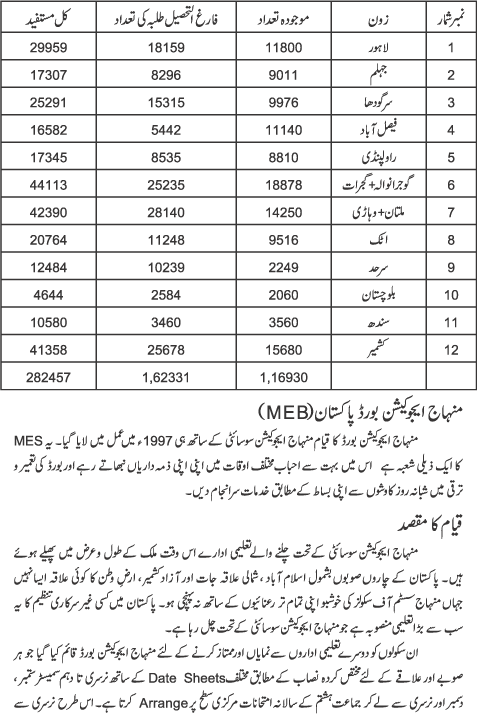 نمبر شمار زون موجودہ تعداد فارغ التحصیل طلبہ کی تعداد کل مستفید
1 لاہور 11800 18159 29959
2 جہلم 9011 8296 17307
3 سرگودھا 9976 15315 25291
4 فیصل آباد 11140 5442 16582
5 راولپنڈی 8810 8535 17345
6 گوجرانوالہ+گجرات 18878 25235 44113
7 ملتان+وہاڑی 14250 28140 42390
8 اٹک 9516 11248 20764
9 سرحد 2249 10239 12484
10 بلوچستان 2060 2584 4644
11 سندھ 3560 3460 10580
12 کشمیر 15680 25678 41358
1,16930 1,62331 282457
منہاج ایجوکیشن بورڈ پاکستان (MEB)
منہاج ایجوکیشن بورڈ کا قیام منہاج ایجوکیشن سوسائٹی کے ساتھ ہی 1997ء میں عمل میں لایا گیا۔ یہ MES
کا ایک ذیلی شعبہ ہے اس میں بہت سے احباب مختلف اوقات میں اپنی اپنی ذمہ داریاں نبھاتے رہے اور بورڈ کی تعمیر و
ترقی میں شبانہ روز کاوشوں سے اپنی بساط کے مطابق خدمات سرانجام دیں۔
قیام کا مقصد
منہاج ایجوکیشن سوسائٹی کے تحت چلنے والے تعلیمی ادارے اس وقت ملک کے طول و عرض میں پھیلے ہوئے
ہیں۔ پاکستان کے چاروں صوبوں بشمول اسلام آباد، شمالی علاقہ جات اور آزاد کشمیر، ارض وطن کا کوئی علاقہ ایسا نہیں
جہاں منہاج سسٹم آف سکولز کی خوشبو اپنی تمام تر رعنائیوں کے ساتھ نہ پہنچی ہو۔ پاکستان میں کسی غیر سرکاری تنظیم کا یہ
سب سے بڑا تعلیمی منصوبہ ہے جو منہاج ایجوکیشن سوسائٹی کے تحت چل رہا ہے۔
ان سکولوں کو دوسرے تعلیمی اداروں سے نمایاں اور ممتاز کرنے کے لئے منہاج ایجوکیشن بورڈ قائم کیا گیا جو ہر
صوبے اور علاقے کے لئے مختص کردہ نصاب کے مطابق مختلف Date Sheets کے ساتھ نرسری تا دہم سمیسٹر ستمبر،
دسمبر اور نرسری سے لے کر جماعت ہشتم کے سالانہ امتحانات مرکزی سطح پر Arrange کرتا ہے۔ اس طرح نرسری سے